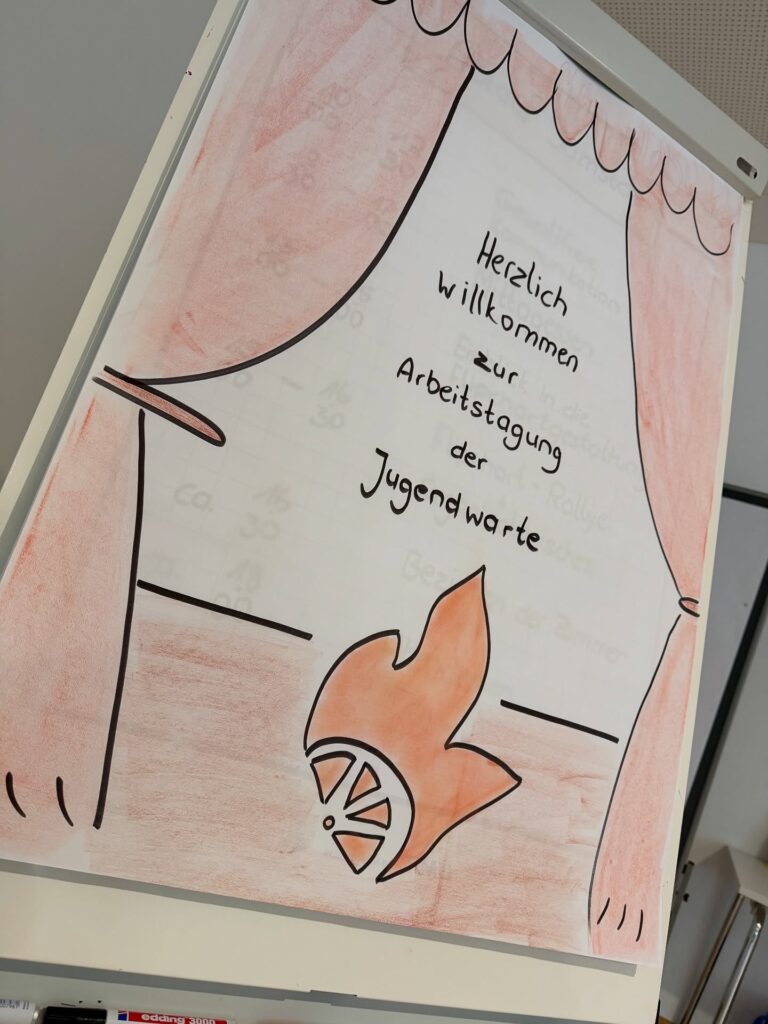 Herzlich
willkommen
zur
Arbeitstagung
der
Jugendwarte
16
30
ca. 16
30
18
edding 3000